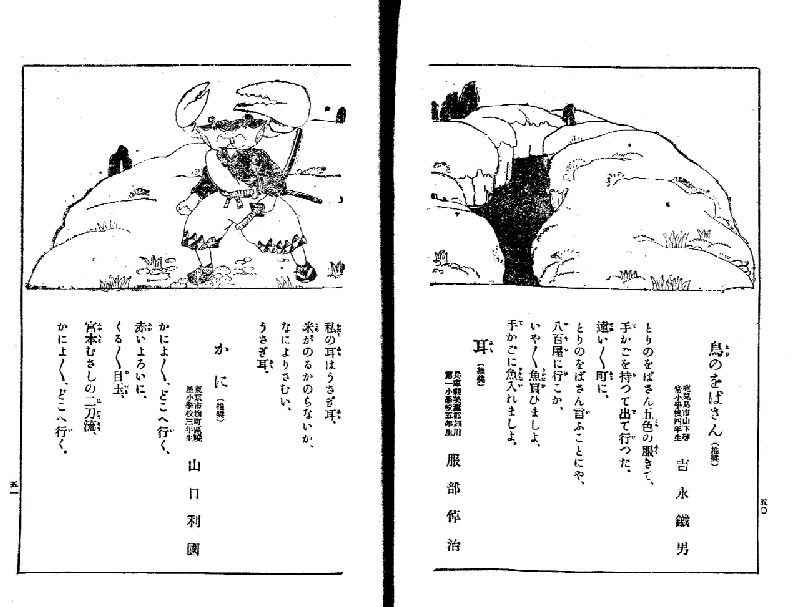 鳥のをばさん (推奨)
鹿児島市山下尋常小學校四年生
吉永鐵男
とりのをばさん五色の服きて、
手かごを持つて出て行つた、
遠い〳〵町に、
とりのをばさん言ふことにや、
八百屋に行こか、
いや〳〵魚買ひましよ、
手かごに魚入れましよ。
耳 (推奨)
第一小學校五年生
服部 治
私の耳はうさぎ耳、
米がのるかのらないか、
なによりさむい、
うさぎ耳。
かに (推奨)
東京市麹町區
小學校三年生
山口利國
かによ〳〵、どこへ行く、
赤いよろいに、
くる〳〵目玉、
宮本むさしの二刀流、
かによ〳〵、どこへ行く。
五〇
五一